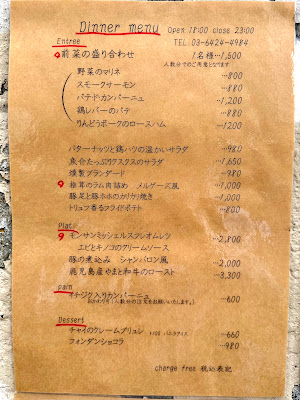 Dinner menu Open 18:00 close 23:00
Entree TEL 03-6424-4984
前菜の盛り合わせ 1名様…1,500
人数分でのご用意となります
野菜のマリネ …800
スモークサーモン …880
パテドカンパーニュ …1,200
鶏レバーのパテ …880
りんどうポークのロースハム …1200
バターナッツと鶏ハツの温かいサラダ …980
魚介たっぷりクスクスのサラダ …1,650
燻製ブランダード …980
椎茸のラム肉詰め メルゲーズ風 …1,000
豚足と豚ホホのカリカリ焼き …1,000
トリュフ香るフライドポテト …800
Plat
モンサンミッシェルスフレオムレツ …2,800
エビとキノコのクリームソース
豚の煮込み シャンバロン風 …2,000
鹿児島産やまと和牛のロースト …3,300
pain
イチジク入りカンパーニュ …600
おかわり可(人数分の注文をお願いいたします。)
Dessert
チャイのクレームブリュレ バニラアイス …660
フォンダンショコラ …980
charge free 税込表記